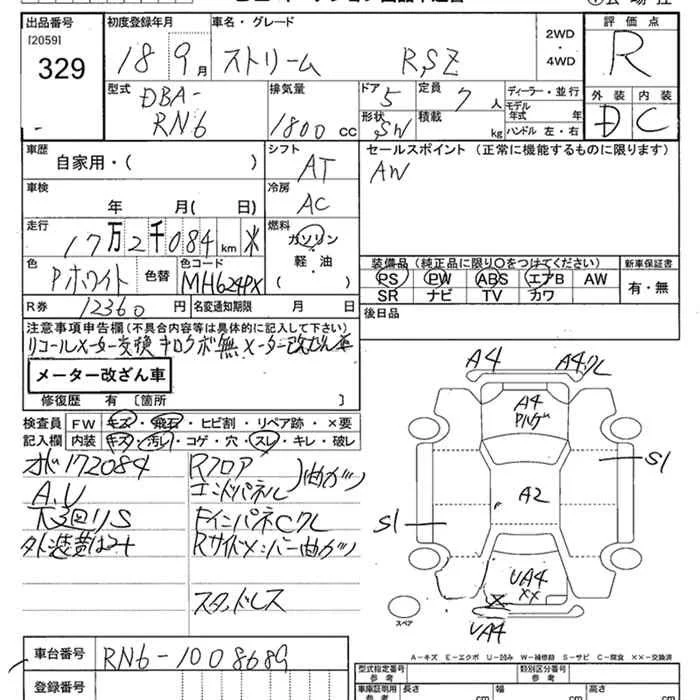 出品番号
[2059]
329
初度登録年月
18 9 月
車名・グレード
ストリーム RSZ
2WD
・
4WD
評価点
R
型式
DBA-
RN6
排気量
1800 cc
ドア
5
形状
SW
定員
7 人
積載
kg
ディーラー・並行
モデル
年式 年
ハンドル 左・右
外装 内装
D C
車歴
自家用・( )
シフト
AT
セールスポイント (正常に機能するものに限ります)
AW
車検
年 月( 日)
冷房
AC
走行
17万2千084 km
燃料
ガソリン
軽・油
( )
色
Pホワイト
色替
色コード
MH624PX
装備品 (純正品に限り○をつけてください)
PS PW ABS エアB AW
SR ナビ TV カワ
新車保証書
有・無
R券 12360 円
名変通知期限 月 日
後日品
注意事項申告欄 (不具合内容等は具体的に記入して下さい)
リコールメーター交換 キロクボ無 メーター改ざん車
メーター改ざん車
修復歴 有 〔箇所 〕
検査員
記入欄
FW キズ・飛石・ヒビ割・リペア跡・×要
内装 キズ・汚レ・コゲ・穴・スレ・キレ・破レ
オド172084
A.U
下廻りS
Rフロア
エンドパネル
曲ガリ
Rサイドメンバー曲ガリ
スタッドレス
A4
A4ワレ
A4
S1
A2
S1
UA4
××
×
UA4
スペア
車台番号
RN6-1008689
登録番号
A-キズ E-エクボ U-凹み W-補修跡 S-サビ C-腐食 ××-交換済
型式指定番号
参考
類別区分番号
参考
車庫証明用
参考
長さ
cm
幅
cm
高さ
cm